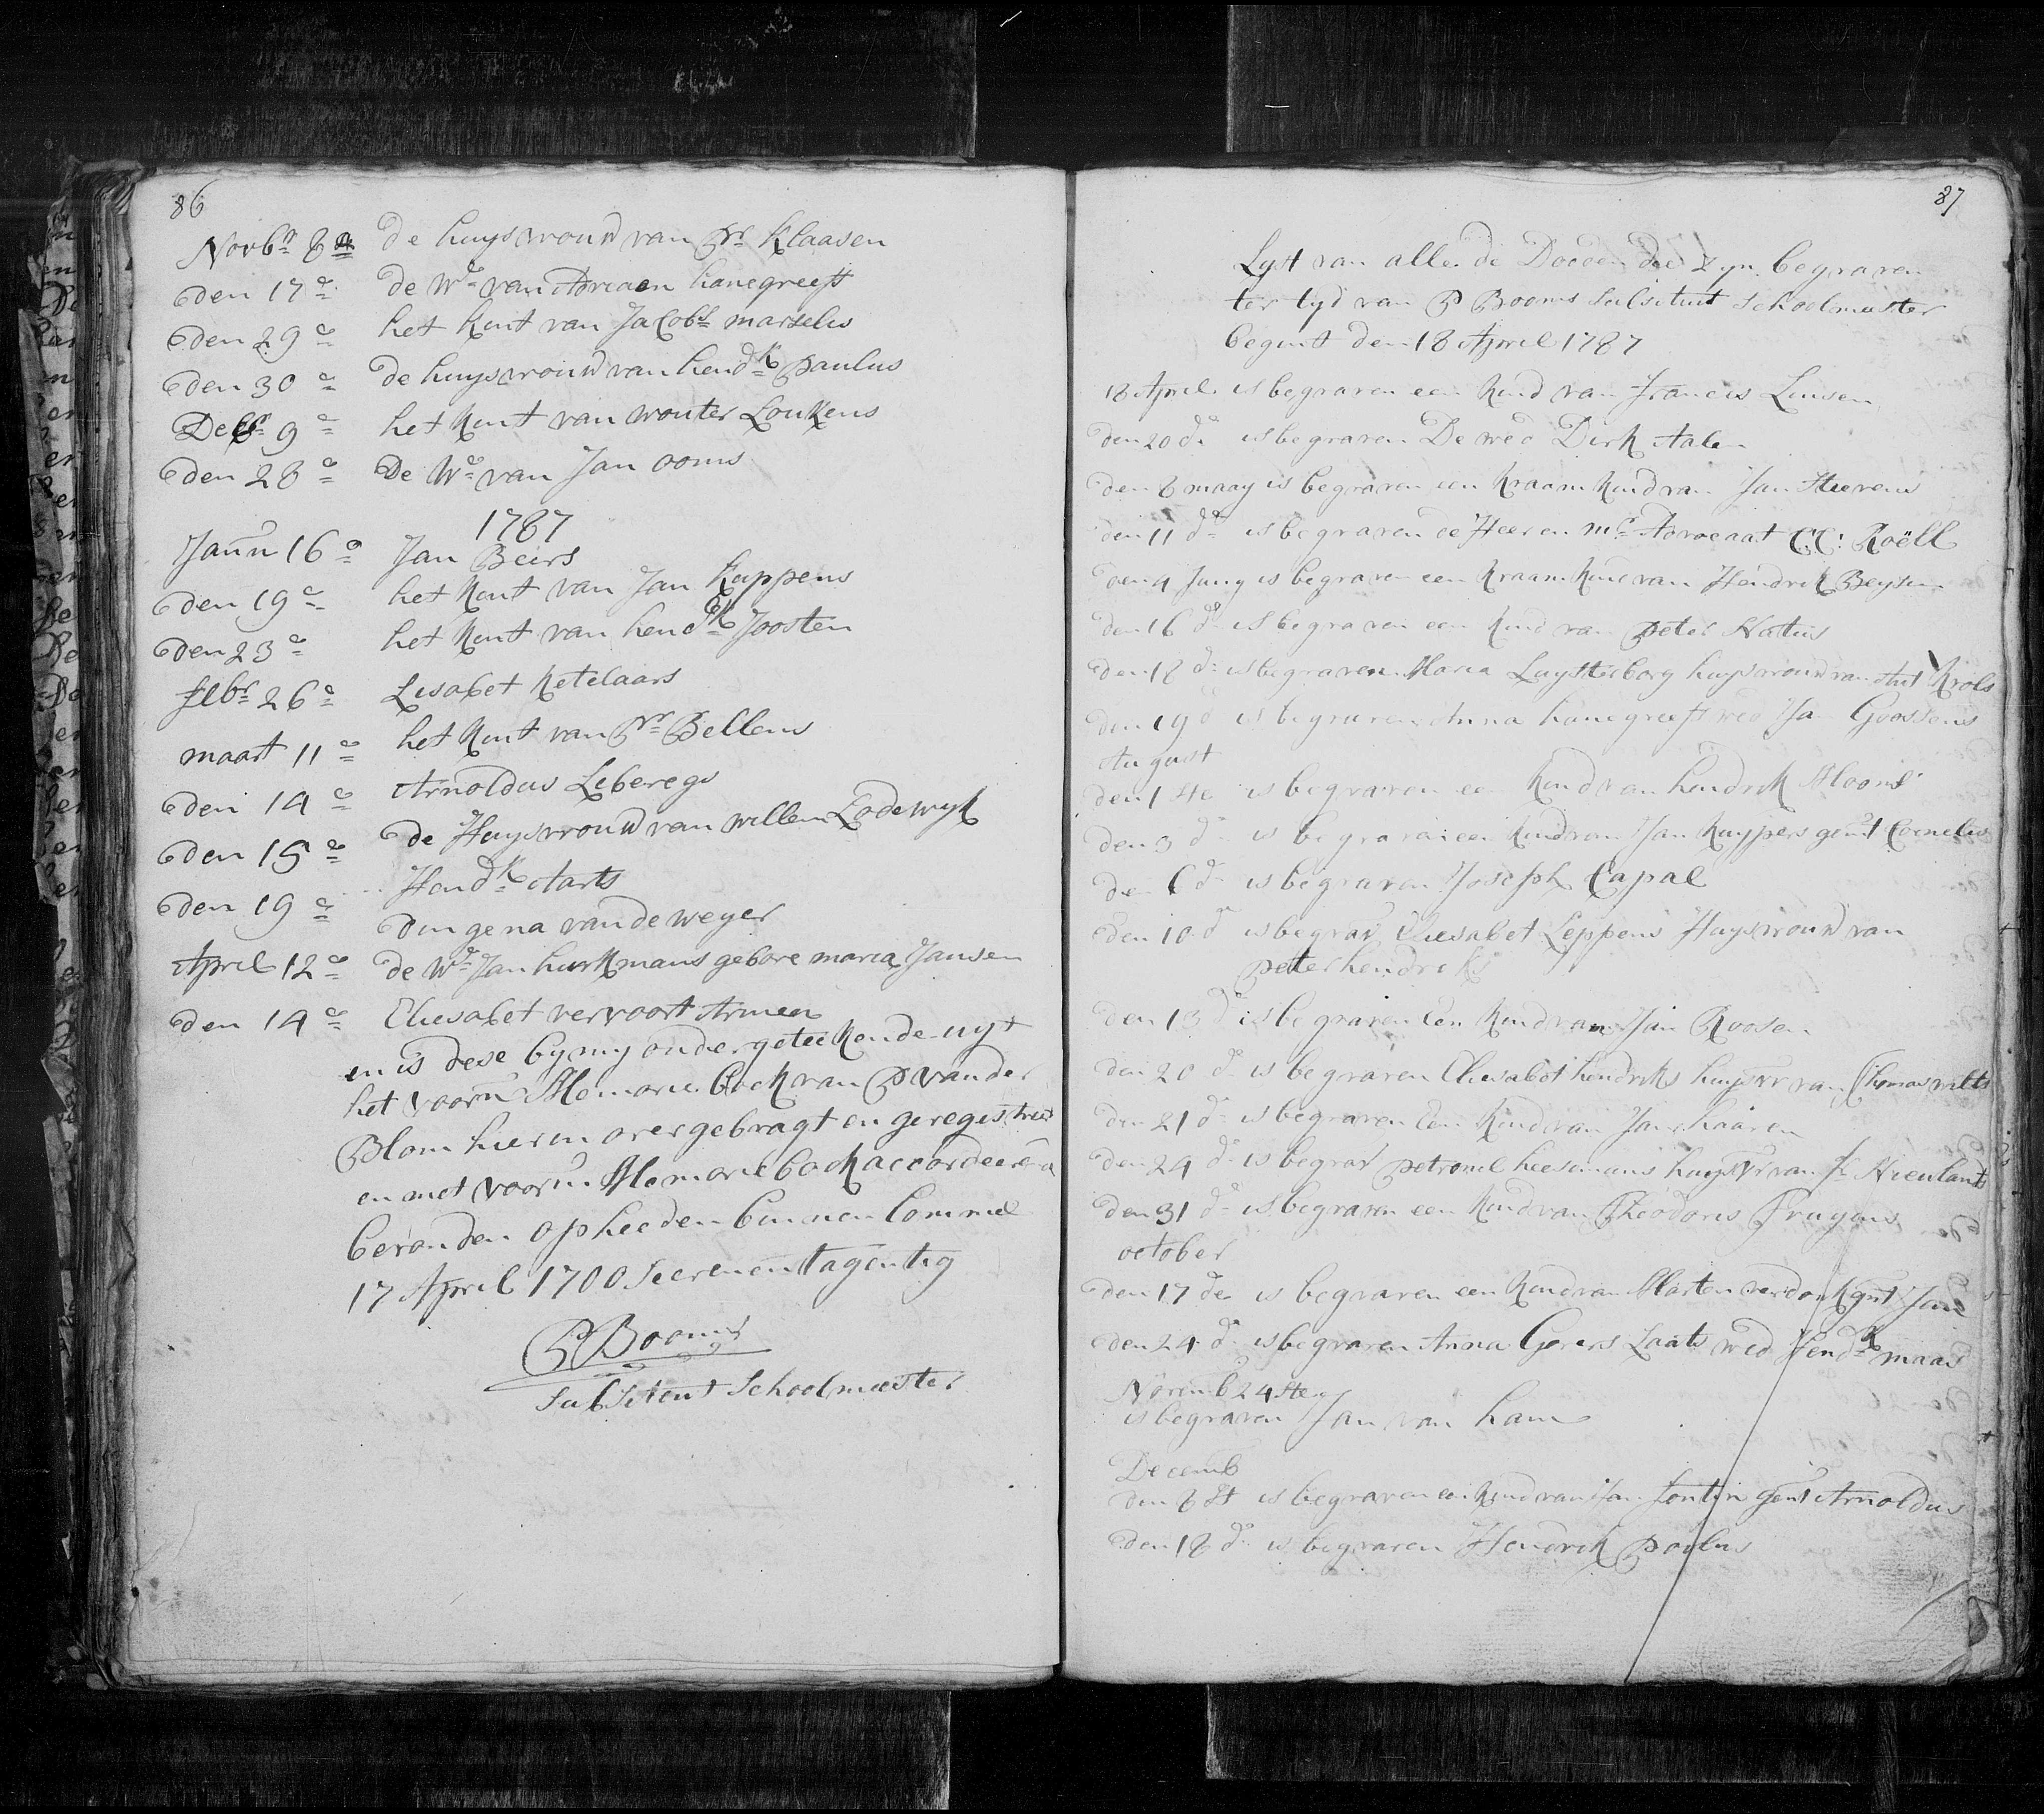 86
Novbr 8 de huysvrouw van Pr Klaasen
den 17 de Wd van Adriaen hanegreeft
den 29 het kint van Jacobs marselis
den 30 de huysvrouw van hendk paulus
Decbr 9 het kint van wouter Loukens
den 28 De Wd van Jan ooms
1787
Jann 16 Jan Beirs
den 19 het kint van Jan Kuppens
den 23 het kint van hendk Joosten
febr 26 Lisabet Ketelaars
maart 11 het kint van Pr Bellens
den 14 Arnoldus Leberegs
den 15 de Huysvrouw van willem Lodewyk
den 19 Hendk Aarts
dingena van de weyer
April 12 de Wd Jan hurkmans gebore maria Jansen
den 14 Eliesabet vervoort Armen
en is dese by my ondergeteekende uyt
het voorn Memorie boek van P van der
Blom hier in overgebragt en geregistreet
en met voorn Memorie boek accordeere
bevonden op heeden binnen Lommel
17 April 1700 seeven en tagentig
P Booms
substituut Schoolmeester
87
Lyst van alle de Dooden die zyn begraven
ter tyd van P Booms substituut schoolmeester
begint den 18 April 1787
18 April is begraven een kind van Francis Linsen
den 20 do is begraven De wed Dirk Aalen
den 8 maay is begraven een kraam kind van Jan Stievens
den 11 do is begraven de Heer en mr Advocaat C:C: Roëll
den 4 Juny is begraven een kraam kind van Hendrik Beysen
den 16 do is begraven een kind van peter Natus
den 18 do is begraven Maria Luysterborg huysvrouw van Ant Krols
den 19 do is begraven Anna hanegreefs wed Jan Goossens
August
den 1 ste is begraven een kind van hendrik Mooms
den 3 do is begraven een kind van Jan Kuypers gent Cornelis
den 6 do is begraven Joseph Capal
den 10 do is begrav Eliesabet Leppens Huysvrouw van
peter hendriks
den 13 do is begraven Een kind van Jan Roosen
den 20 do is begraven Eliesabet hendriks huysvr van Thomas vilts
den 21 do is begraven Een kind van Jan haaren
den 24 do is begrav petronel heesemans huysvr van Nieulants
den 31 do is begraven een kind van Theodoris Pruyms
october
den 17 de is begraven een kind van Marten verdonk gnt Jan
den 24 do is begraven Anna Gevers Laats wed Hendk maas
Novemb 24 ste
is begraven Jan van ham
Decemb
den 8 st is begraven een kind van Jan fontin gent Arnoldus
den 18 do is begraven Hendrik poulus